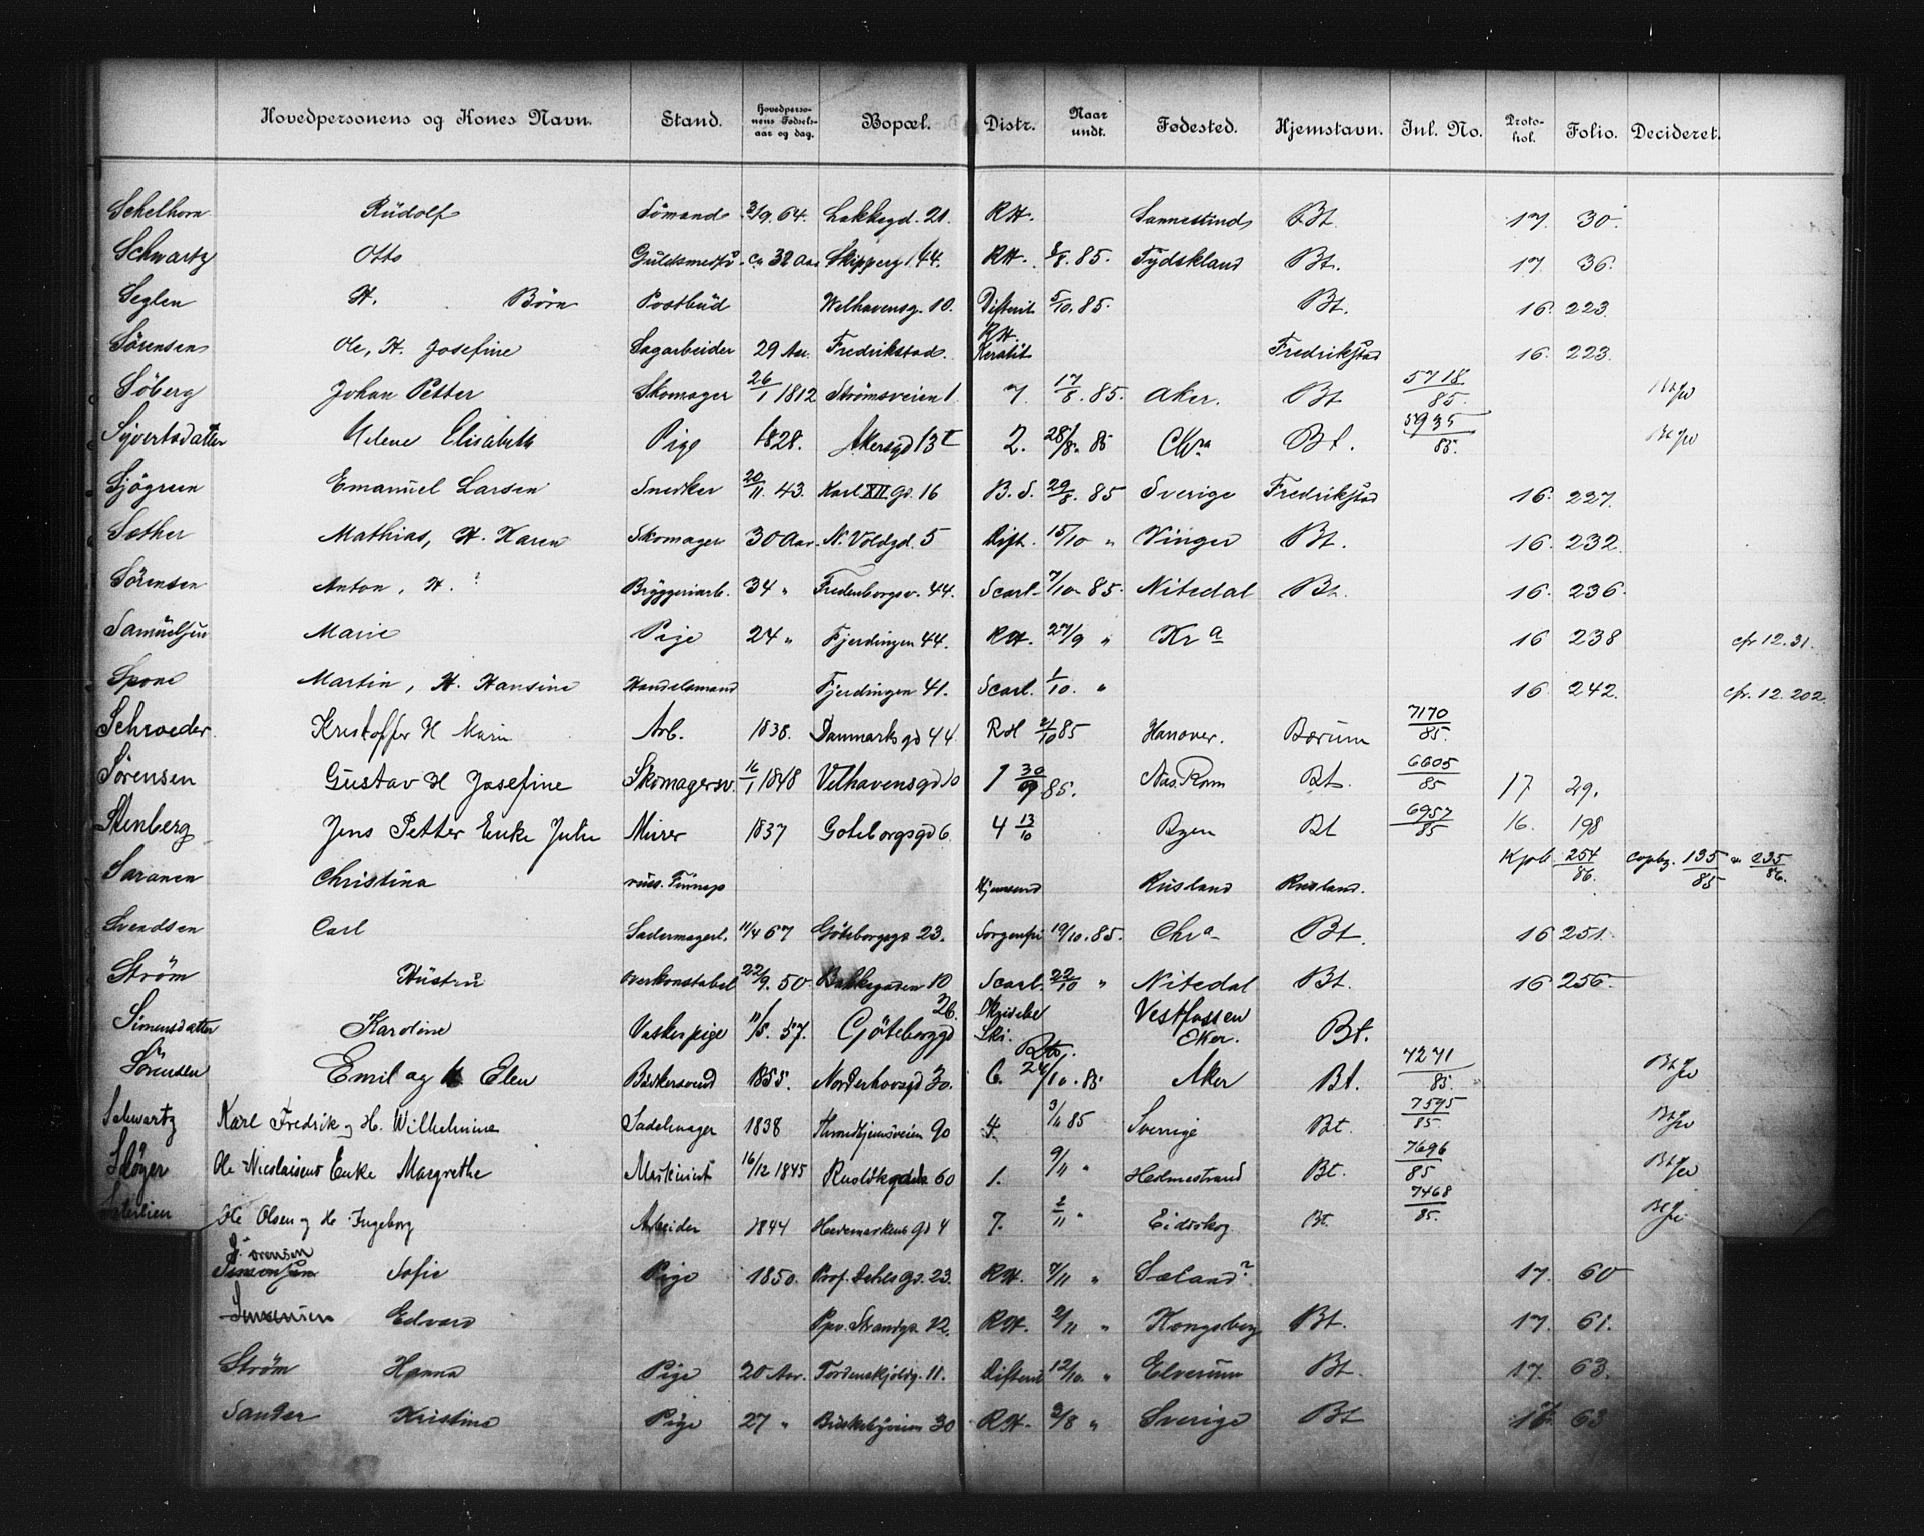 Hovedpersonens og Kones Navn. Stand. Hovedpersonens Fødselsaar og dag. Bopæl. Distr. Naar undt. Fødested. Hjemstavn. Inl. No. Protokol. Folio. Decideret.
Schelhorn Rudolf Sømand 3/9. 64. Lakkegd. 21. RH. Sannesund Bt. 17. 30.
Schwartz Otto ca 32 Aar Skipperg. 44. RH. 8/8. 85. Tydskland Bt. 17. 36.
Seglen H. Børn Postbud Welhavensg. 10. Difterit 5/10. 85. Bt. 16. 223.
Sørensen Ole, H. Josefine Sagarbeider 29 Aar. Fredrikstad. RH. Keratit Fredrikstad 16. 223.
Søberg Johan Petter Skomager 26/1 1812 Strømsveien 1 7. 17/8. 85. Aker. Bt 5718/85.
Syvertsdatter Helene Elisabeth Pige 1828. Akersgd 13 2. 28/8. 85 Chra Bt. 5935/85.
Sjøgreen Emanuel Larsen Snedker 20/11. 43. Karl XII Gd. 16 B. S. 29/8. 85 Sverige Fredrikstad 16. 227.
Sæther Mathias, H. Karen Skomager 30 Aar. N. Voldgd. 5 Dift. 15/10 " Vinger Bt. 16. 232.
Sørensen Anton, H. ? Bryggeriarb. 34 " Fredensborgsv. 44. Scarl. 7/10. 85. Nitedal Bt. 16. 236.
Samuelsen Marie Pige 24 " Fjerdingen 44. RH. 27/9 " Kra 16 238 cfr 12. 31.
Spone Martin, H. Hansine Handelsmand Fjerdingen 41. Scarl. 1/10. " 16 242. cfr. 12. 202.
Schroeder Kristoffer H Marie Arb. 1838. Danmarks gd 44. RH 2/10 85 Hanover. Bærum 7170/85.
Sørensen Gustav H Josefine Skomagersv. 16/1 1848 Velhavensgd 10 1 30/9 85. Næs. Rom Bt. 6605/85 17 29.
Stenberg Jens Petter Enke Julie Murer 1837 Goteborgsgd 6. 4 13/10 Byen Bt 6957/85 16. 198
Saranen Christina russ. Finnap Hjemsend Rusland Rusland. Kpb 254/86. Copbg. 135/85 " 235/86.
Svendsen Carl Sadermagerl. 11/4 67 Göteborgsga 23. Sorgenfri 19/10. 85. Chra Bt. 16 251.
Strøm Hustru Overkonstabel 22/9. 50. Bakkegaden 10 Scarl. 22/10 " Nitedal Bt. 16 256.
Simensdatter Karoline Vaskerpige 11/5. 57. Göteborggd 26. Vestfossen Eker. Bt.
Sørensen Emil og H Elen 1855. Norderhovsgd 30. 6. 24/10. 85 Aker Bt. 7271/85.
Schwartz Karl Fredrik og H. Wilhelmine Sadelmager 1838 Throndhjemsveien 90 4. 3/11 85 Sverrige Bt. 7595/85
Ole Nicolaisens Enke Margrethe Maskinist 16/12 1845 60 1. 9/11 " Holmestrand Bt. 7696/85
Ole Olsen og H. Ingeborg Arbeider 1844 Hedemarkens Gd 4 7. 2/11 " Eidsskog Bt. 7468/85.
Sørensen Simonsen Sofie Pige 1850. Prof. Dahls Gd. 23. RH. 7/11 " Sæland? 17. 60
Edvard Ppv. Strandga 12. RH. 9/11 " Kongsberg Bt. 17. 61.
Strøm Hanna Pige 20 Aar. Tordenskjoldg. 11. Difterit 12/10. " Elverum Bt. 17. 63.
Sander Kristine Pige 27 " 30 RH. 2/8 " Sverige Bt 63